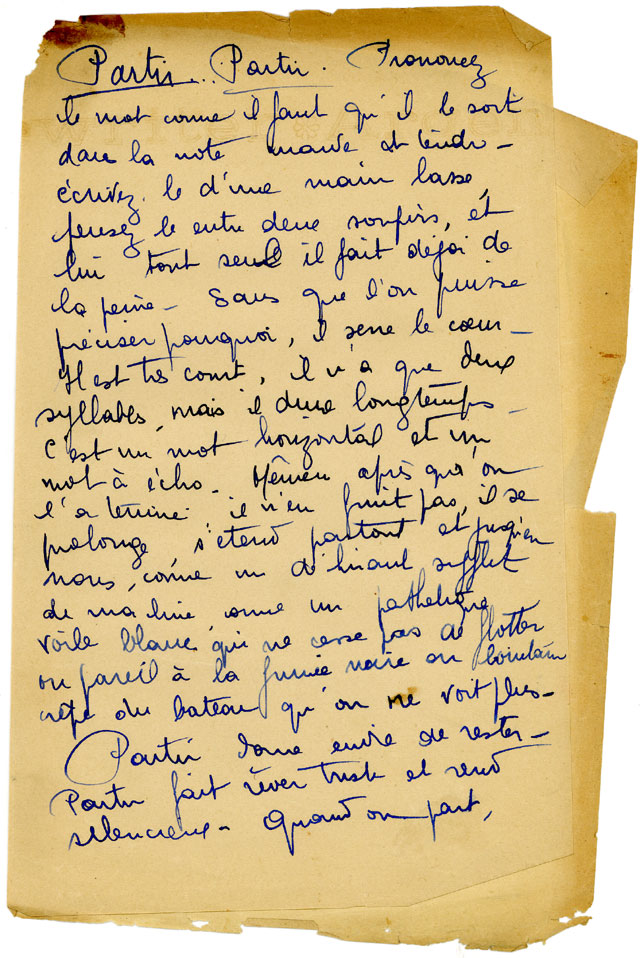 Partir.. Partir. Prononcez
le mot comme il faut qu'il le soit
dans la note mauve et tendre –
écrivez. le d'une main lasse,
pensez le entre deux soupirs, et
lui tout seul il fait déjà de
la peine – Sans que l'on puisse
préciser pourquoi, il serre le cœur –
Il est très court, il n'a que deux
syllabes, mais il dure longtemps –
C'est un mot horizontal et un
mot à écho – Même après qu'on
l'a terminé il n'en finit pas, il se
prolonge, s'étend partout et jusqu'en
nous, comme un déchirant sifflet
de machine, comme un pathétique
voile blanc qui ne cesse pas de flotter
ou pareil à la fumée noire au lointain
crêpe du bateau qu'on ne voit plus –
Partir donne envie de rester –
Partir fait rêver triste et rend
silencieux – Quand on part,